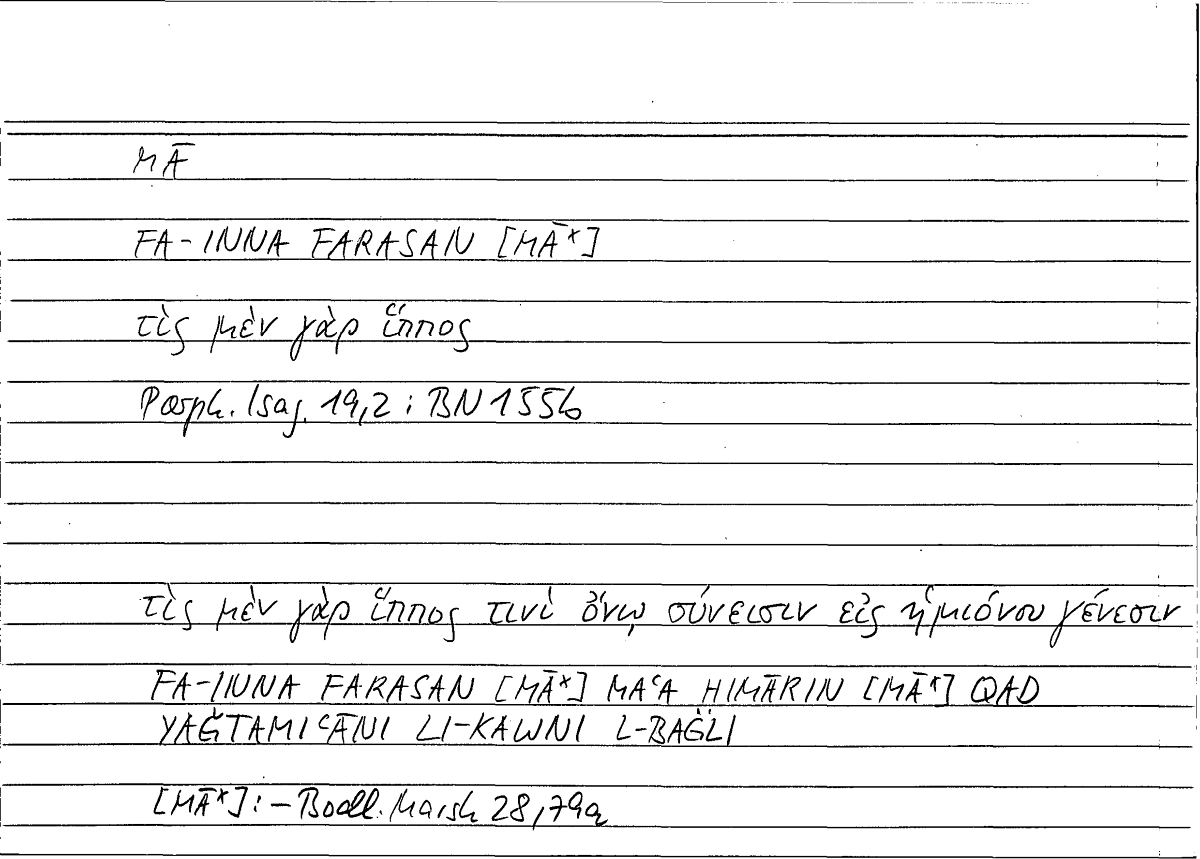 MĀ
FA-INNA FARASAN [MĀ*]
τὶς μὲν γὰρ ἵππος
Porph. Isag. 19,2 : BN 155b
τὶς μὲν γὰρ ἵππος τινὶ ὄνῳ σύνεισιν εἰς ἡμιόνου γένεσιν
FA-INNA FARASAN [MĀ*] MAʿA HIMĀRIN [MĀ*] QAD
YAǦTAMIʿĀNI LI-KAWNI L-BAĠLI
[MĀ*]: – Bodl. Marsh 28,79a